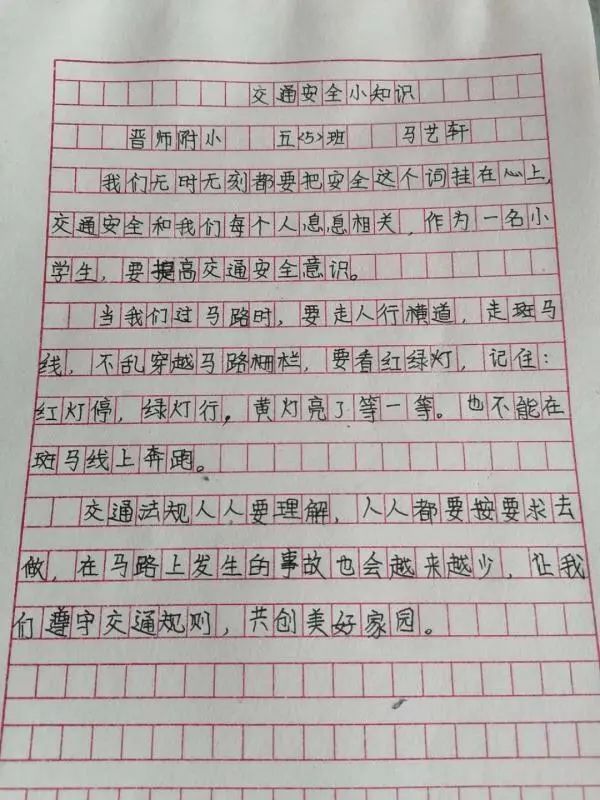 交通安全小知识
晋师附小 五<5>班 马艺轩
我们无时无刻都要把安全这个词挂在心上,
交通安全和我们每个人息息相关,作为一名小
学生,要提高交通安全意识。
当我们过马路时,要走人行横道,走斑马
线,不乱穿越马路栅栏,要看红绿灯,记住:
红灯停,绿灯行,黄灯亮了等一等。也不能在
斑马线上奔跑。
交通法规人人要理解,人人都要按要求去
做,在马路上发生的事故也会越来越少,让我
们遵守交通规则,共创美好家园。